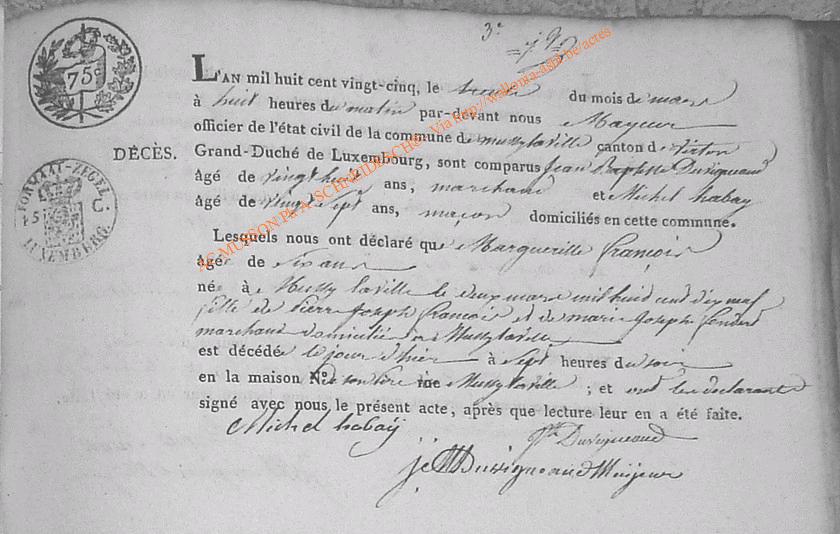 3e =19=
75c
L'AN mil huit cent vingt-cinq, le trente du mois de mars
à huit heures du matin par-devant nous Mayeur
officier de l'état civil de la commune de mussy laville canton de virton
DÉCÈS. Grand-Duché de Luxembourg, sont comparus Jean Baptiste Duvigneaud
âgé de vingt huit ans, marchand et Michel habay
âgé de vingt sept ans, maçon domiciliés en cette commune.
FORMAAT-ZEGEL
45 C.
LUXEMBERG.
Lesquels nous ont déclaré que Marguerille françois
âgée de six ans
née à Mussy laville le deux mars mil huid cent dix neuf
fille de Pierre Joseph francois et de marie Joseph
marchand domicilié a Mussy laville
est décédée le jour d'hier à sept heures du soir
en la maison No. de son père rue Mussy laville ; et ont les declarants
signé avec nous le présent acte, après que lecture leur en a été faite.
Michel habaÿ Duvigneaud
Duvigneaud Maijeur
AC MUSSON P/A. SCHNEIDESCH® Via http://wallonia-asbl.be/actes